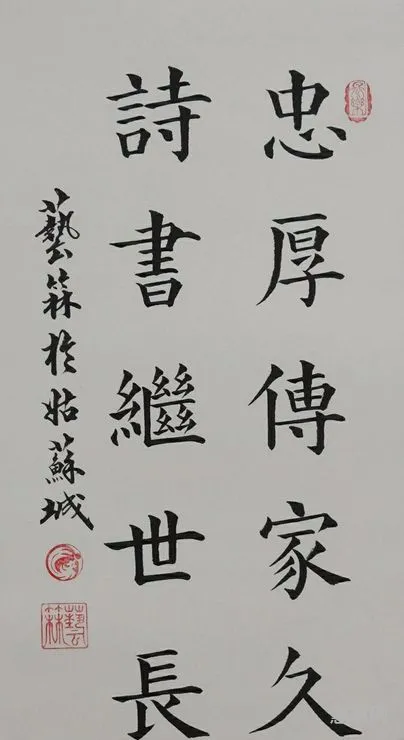 忠厚傳家久
詩書繼世長
藝箖於姑蘇城
藝箖